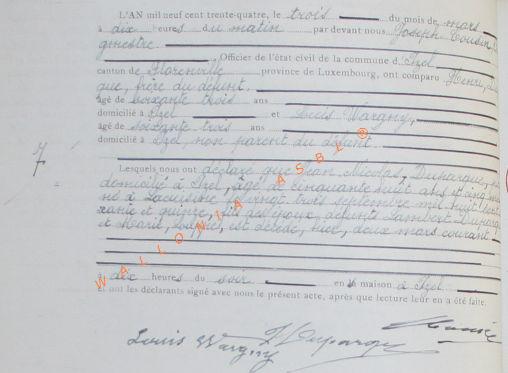 L'AN mil neuf cent trente-quatre, le trois du mois de mars
à dix heures du matin par devant nous Joseph Cousin,
ginestre.
Officier de l'état civil de la commune d'Izel
canton de Florenville province de Luxembourg, ont comparu Henri,
que, frère du défunt.
âgé de soixante trois ans
domicilié à Izel et Louis Wargny,
âgé de soixante trois ans
domicilié à Izel, non parent du défunt
7
Lesquels nous ont déclaré que Jean, Nicolas, Duparque,
domicilié à Izel, âgé de cinquante huit ans et cinq
né à le vingt trois septembre mil huit cent
et quinze, fils des époux, défunts Lambert
et Marie, est décédé, hier, deux mars courant
à dix heures du soir en sa maison à Izel.
et ont les déclarants signé avec nous le présent acte, après que lecture leur en a été faite.
Louis Wargny H Duparque
WALLONIA ASBL ®